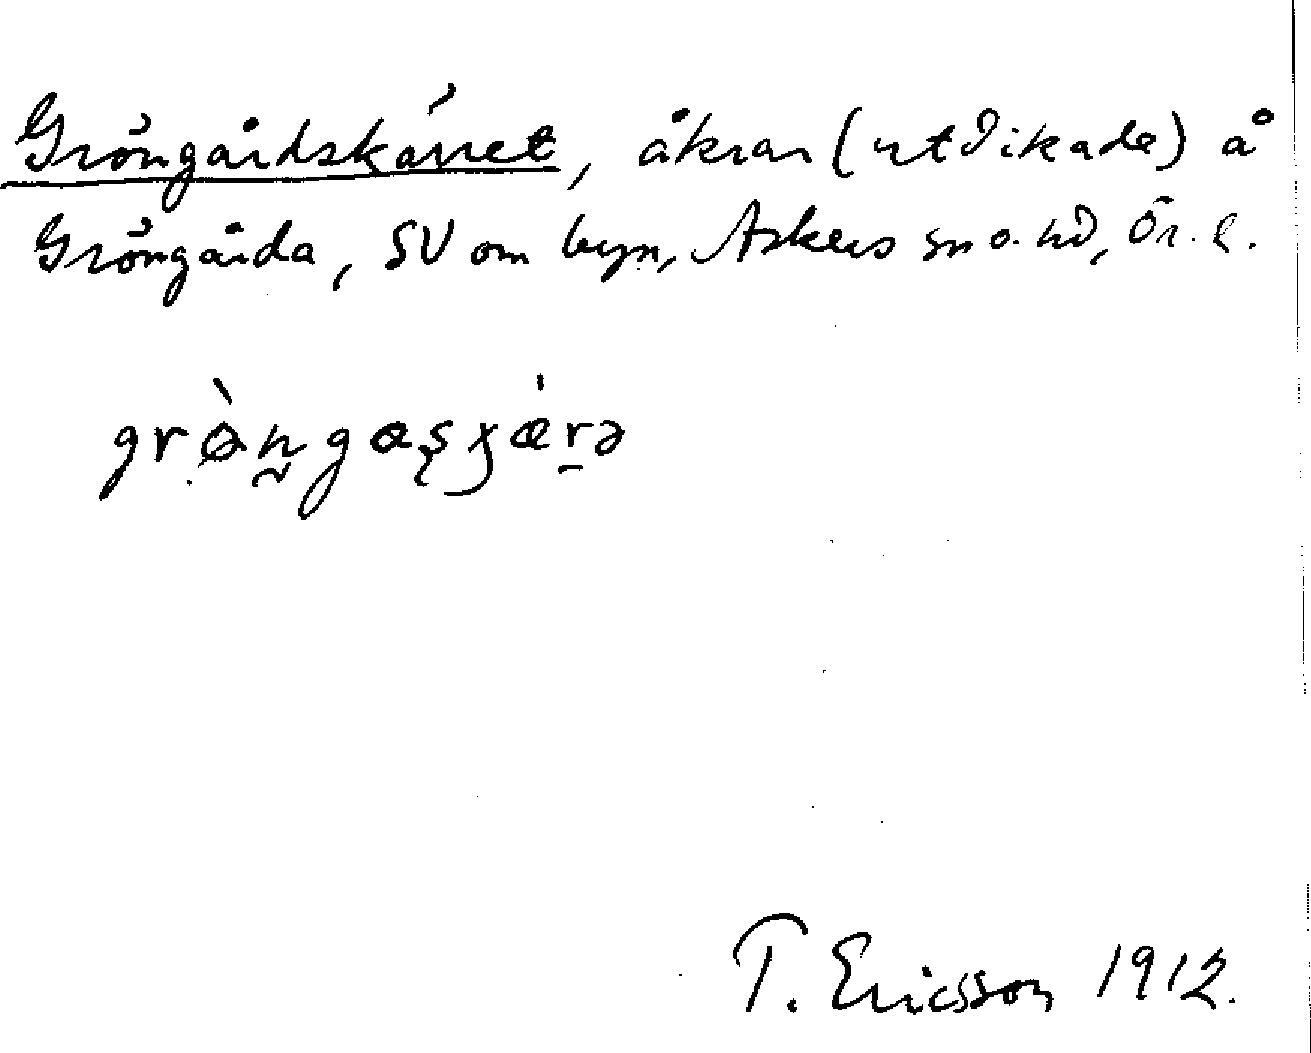 Gröngårdskärret, åkrar (utdikade) å
Gröngårda, SV om byn, Askers sn o. hd, Ör. l.
grø̀n̰gaʂɟǽr̠ə
T. Ericsson 1912.